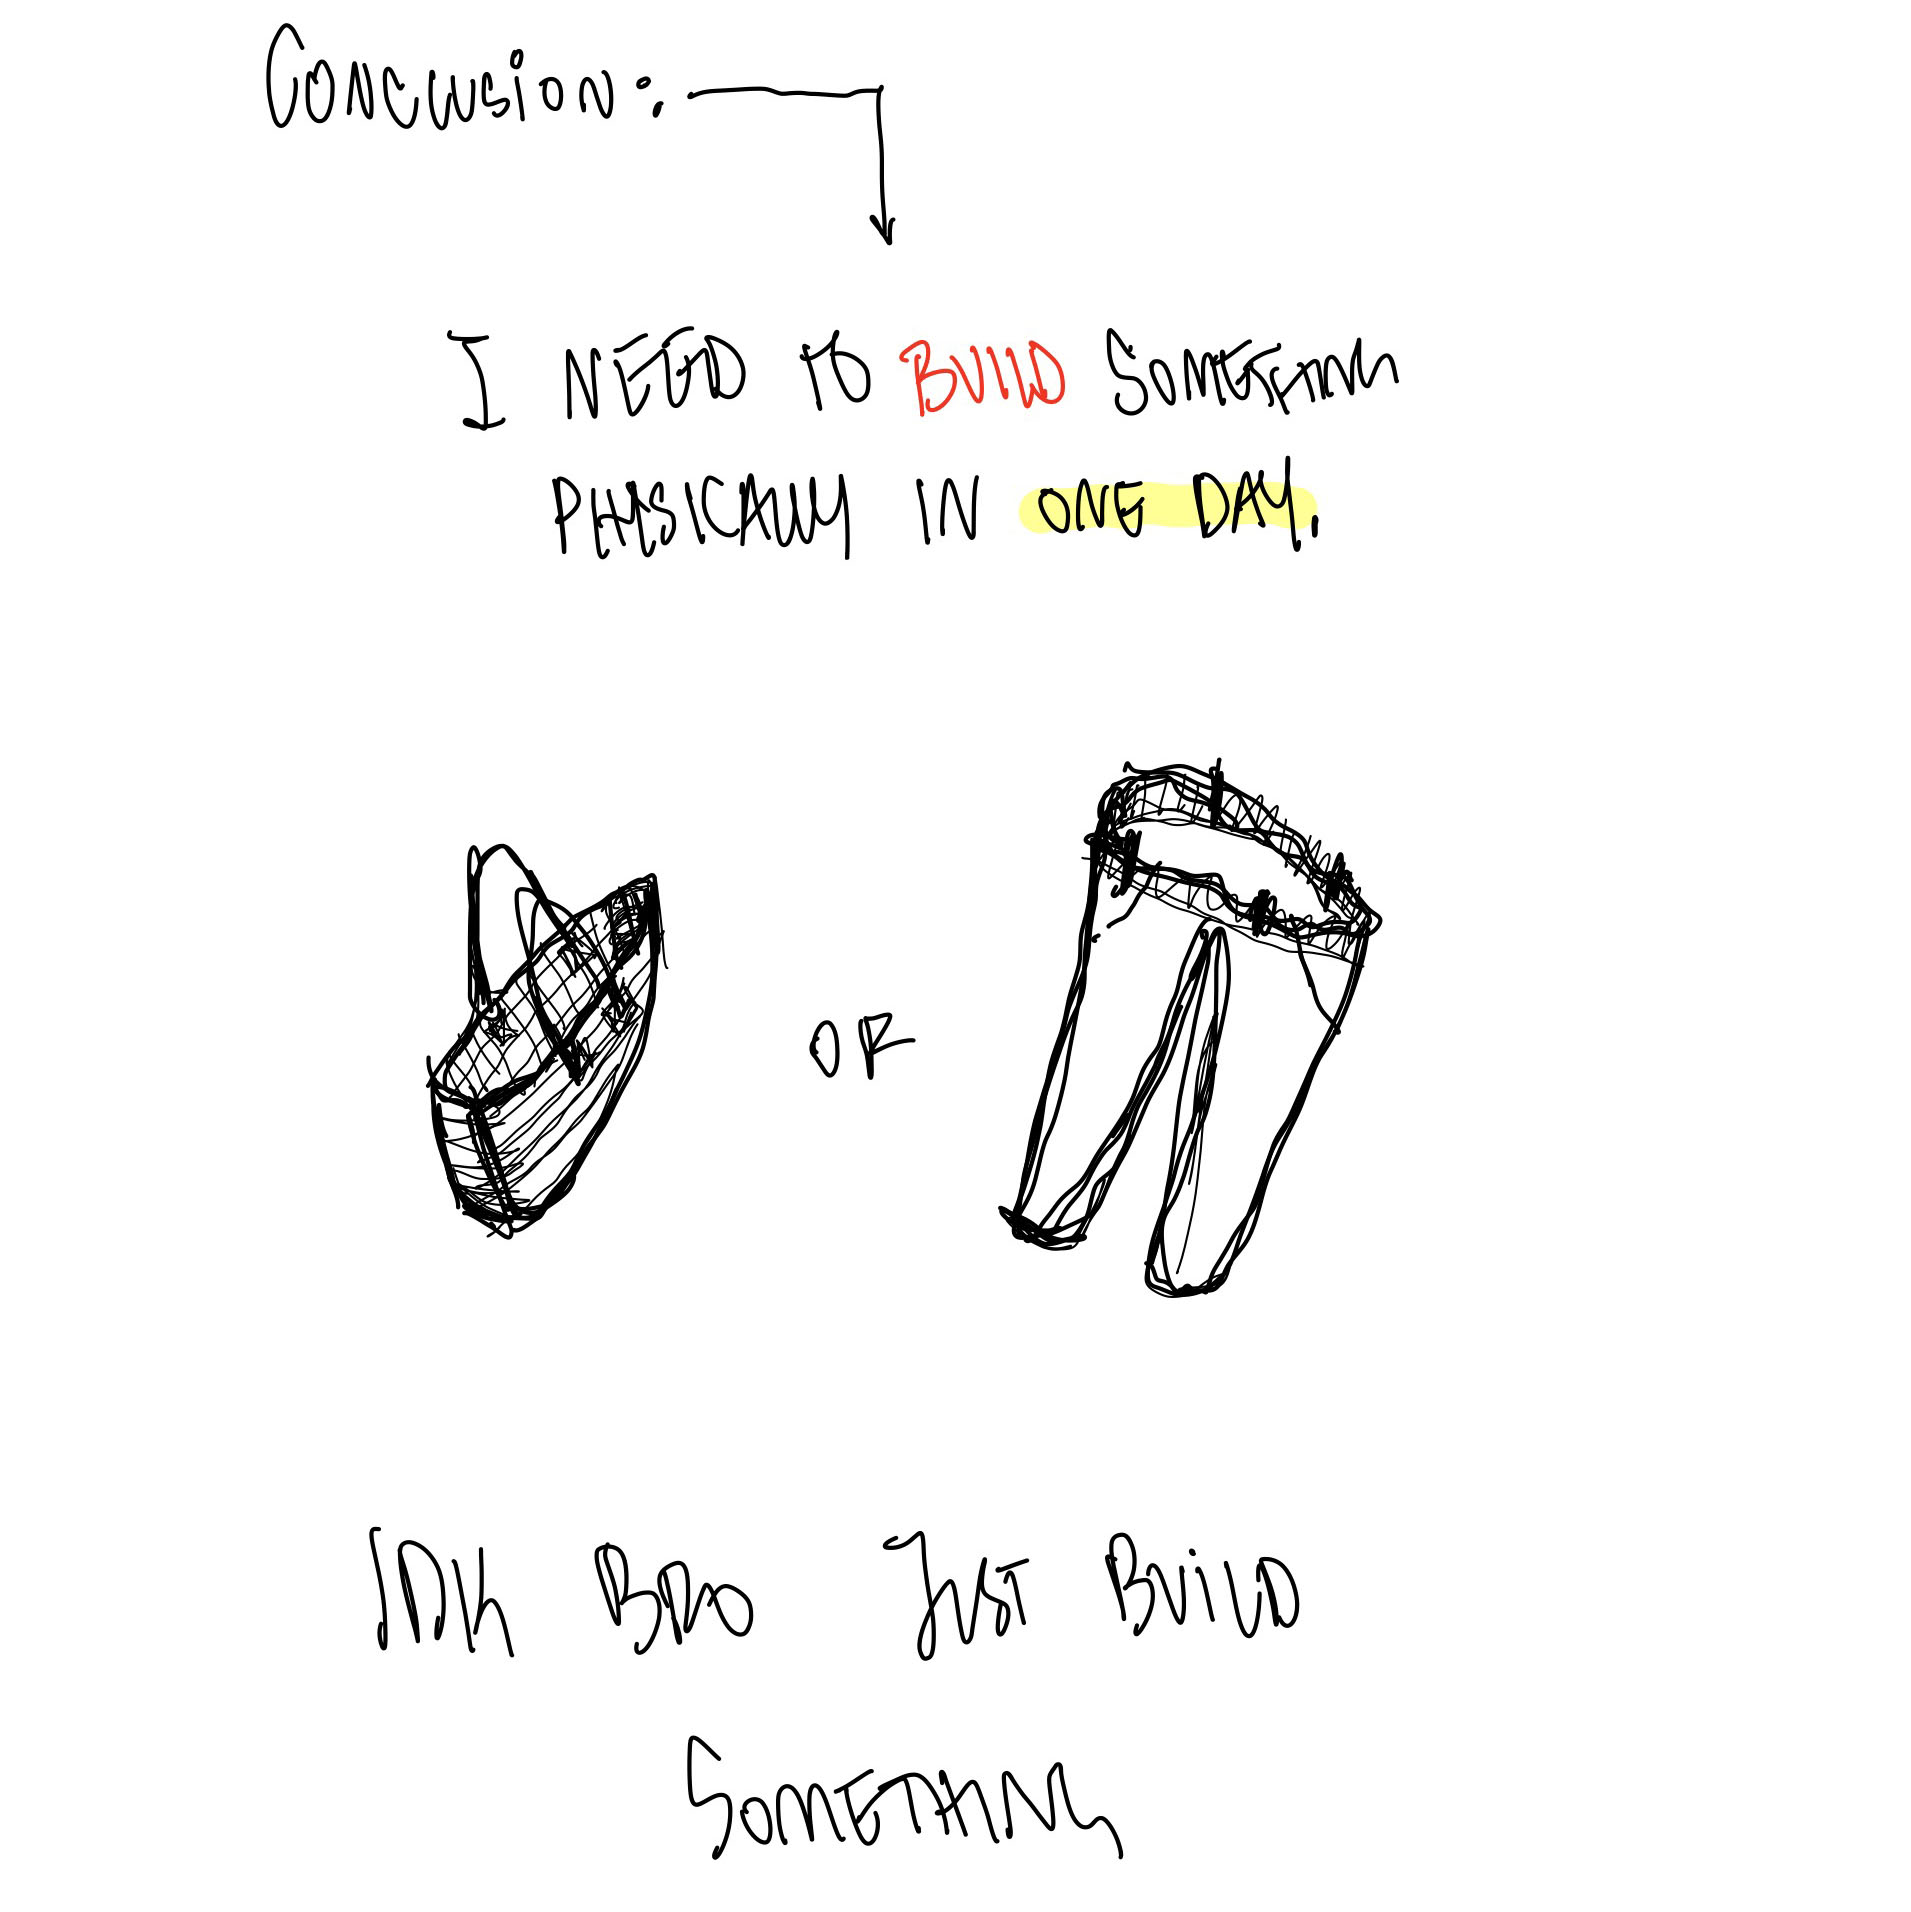 Conclusion:
I NEED TO BUILD SOMETHING
PHYSICALLY IN ONE DAY!
OR
IDK BRO JUST BUILD
SOMETHING